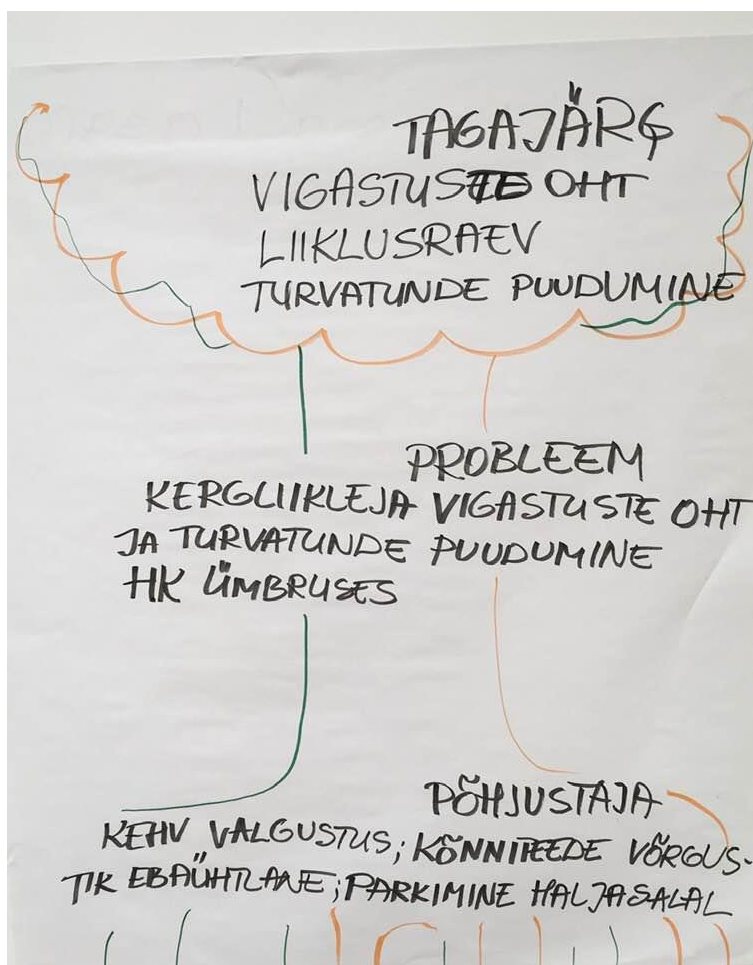 TAGAJÄRG
VIGASTUSTE OHT
LIIKLUSRAEV
TURVATUNDE PUUDUMINE
PROBLEEM
KERGLIIKLEJA VIGASTUSTE OHT
JA TURVATUNDE PUUDUMINE
HK ÜMBRUSES
PÕHJUSTAJA
KEHV VALGUSTUS; KÕNNITEEDE VÕRGUS-
TIK EBAÜHTLANE; PARKIMINE HALJASALAL